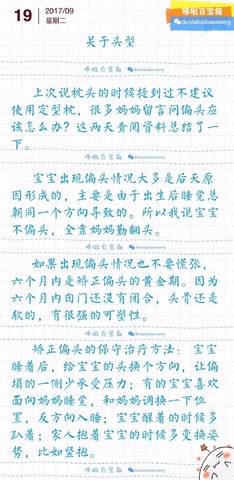 19
2017/09
星期二
哆啦百宝箱
duolabaibaoxiang
关于头型
哆啦百宝箱 duolabaibaoxiang
上次说枕头的时候提到过不建议
使用定型枕，很多妈妈留言问偏头应
该怎么办？这两天查阅资料总结了一
下。
哆啦百宝箱 duolabaibaoxiang
宝宝出现偏头情况大多是后天原
因形成的，主要是由于出生后睡觉总
朝同一个方向导致的。所以我说宝宝
不偏头，全靠妈妈勤翻头。
哆啦百宝箱 duolabaibaoxiang
如果出现偏头情况也不要慌张，
六个月内是矫正偏头的黄金期。因为
六个月内囟门还没有闭合，头骨还是
软的，有很强的可塑性。
哆啦百宝箱 duolabaibaoxiang
矫正偏头的保守治疗方法：宝宝
睡着后，给宝宝的头换个方向，让偏
塌的一侧少承受压力；有的宝宝喜欢
面向妈妈睡觉，和妈妈调换一下位
置，反方向入睡；宝宝醒着的时候多
趴着；家人抱着宝宝的时候多变换姿
势，比如竖抱。
哆啦百宝箱 duolabaibaoxiang